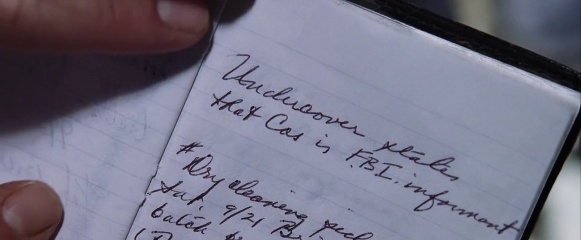 Undercover states
that Cas is F.B.I. informant
# Dry cleaning
Sat. 9/21
batch